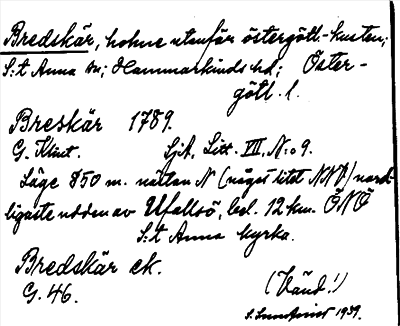 Bredskär, holme utanför östergötl.-kusten;
S:t Anna sn; Hammarkinds hd; Öster-
götl. l.
Breskär 1789.
G. Klint. Sjk, Litt. VII, No 9.
Läge 850 m. nästan N (något litet NNV) nord-
ligaste udden av Ufallsö, bel. 12 km. ÖNÖ
S:t Anna kyrka.
Bredskär ek.
G. 46. (Vänd!)
S. 1939.